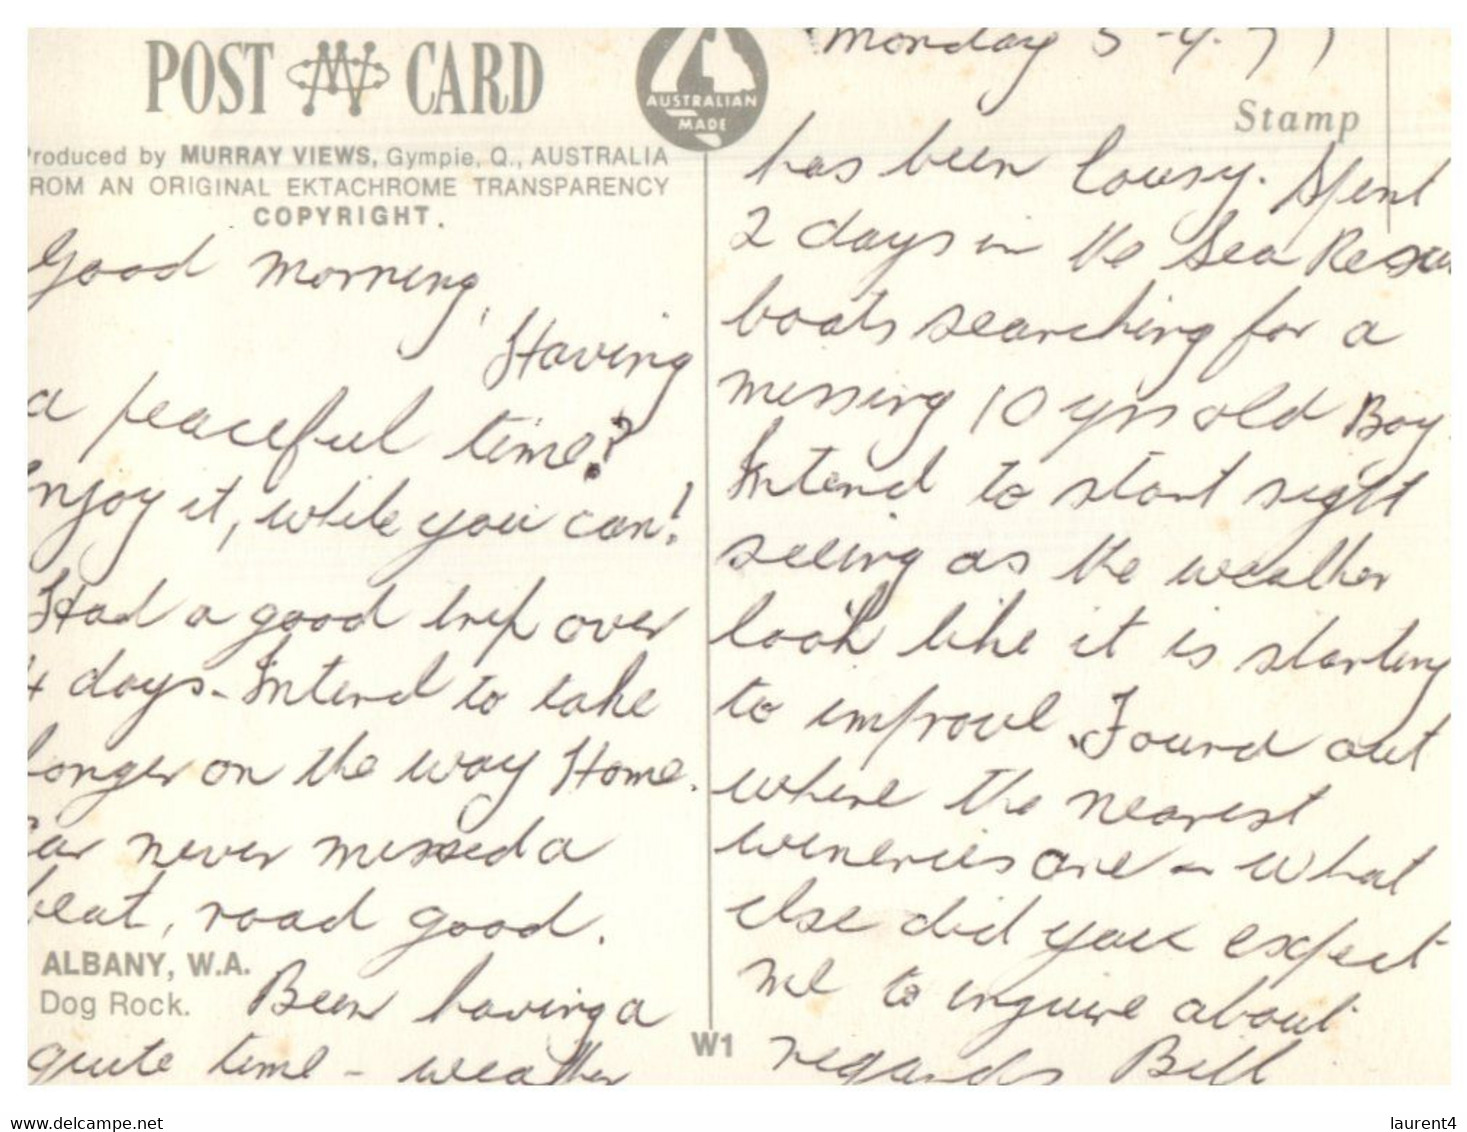 POST CARD
AUSTRALIAN
MADE
roduced by MURRAY VIEWS, Gympie, Q., AUSTRALIA
ROM AN ORIGINAL EKTACHROME TRANSPARENCY
COPYRIGHT.
Good morning,
Having
a peaceful time?
Enjoy it, while you can!
Had a good trip over
4 days - Intend to take
longer on the way Home.
Car never missed a
beat, road good.
ALBANY, W.A.
Dog Rock.
Been having a
quite time - weather
W1
Monday 5-4-77
Stamp
has been lousy. Spent
2 days in the Sea Rescu
boats searching for a
missing 10 yrs old Boy
Intend to start sight
seeing as the weather
look like it is starting
to improve. Found out
where the nearest
wineries are - what
else did you expect
me to inquire about
regards Bill
laurent4
delcampe.net